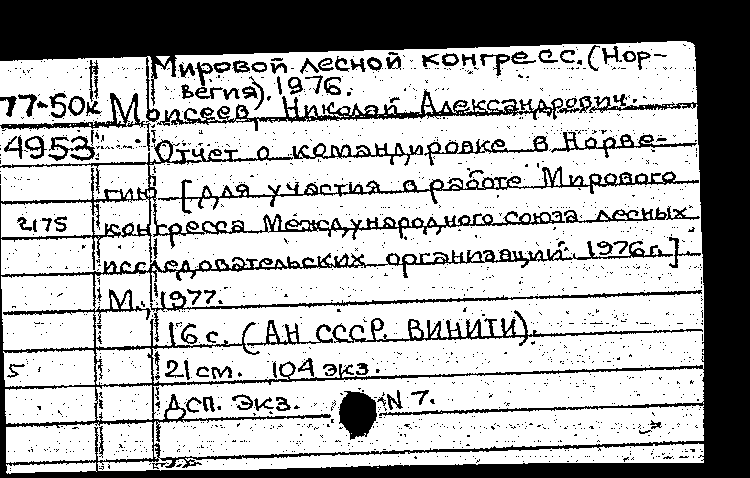 Мировой лесной конгресс. (Нор-
вегия). 1976.
77-50к Моисеев, Николай Александрович.
4953 Отчет о командировке в Норве-
гию [для участия в работе Мирового
2175 конгресса Международного союза лесных
исследовательских организаций. 1976г.]
М., 1977.
16 с. (АН СССР. ВИНИТИ).
5 21 см. 104 экз.
ДСП. Экз. N 7.